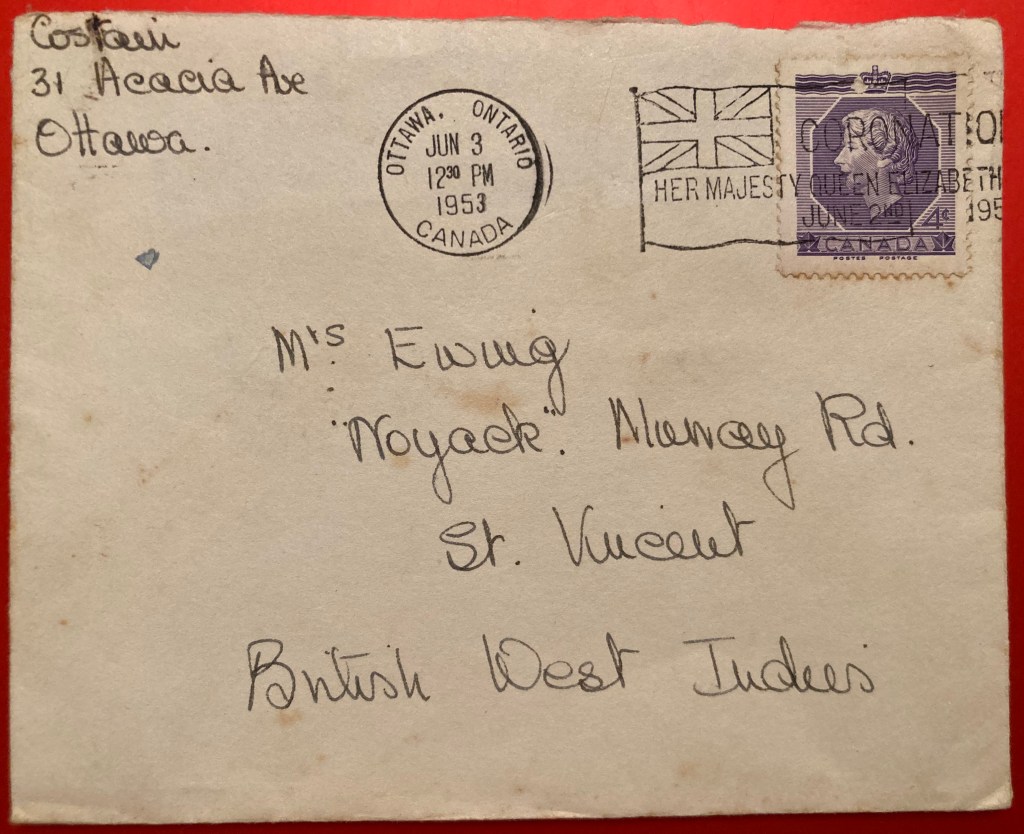 Costain
31 Acacia Ave
Ottawa.
OTTAWA, ONTARIO
JUN 3
12³⁰ PM
1953
CANADA
CORONATIO
HER MAJESTY QUEEN ELIZABETH
JUNE 2ND 195
4¢
CANADA
POSTES POSTAGE
Mrs Ewing
"Noyack". Murray Rd.
St. Vincent
British West Indies